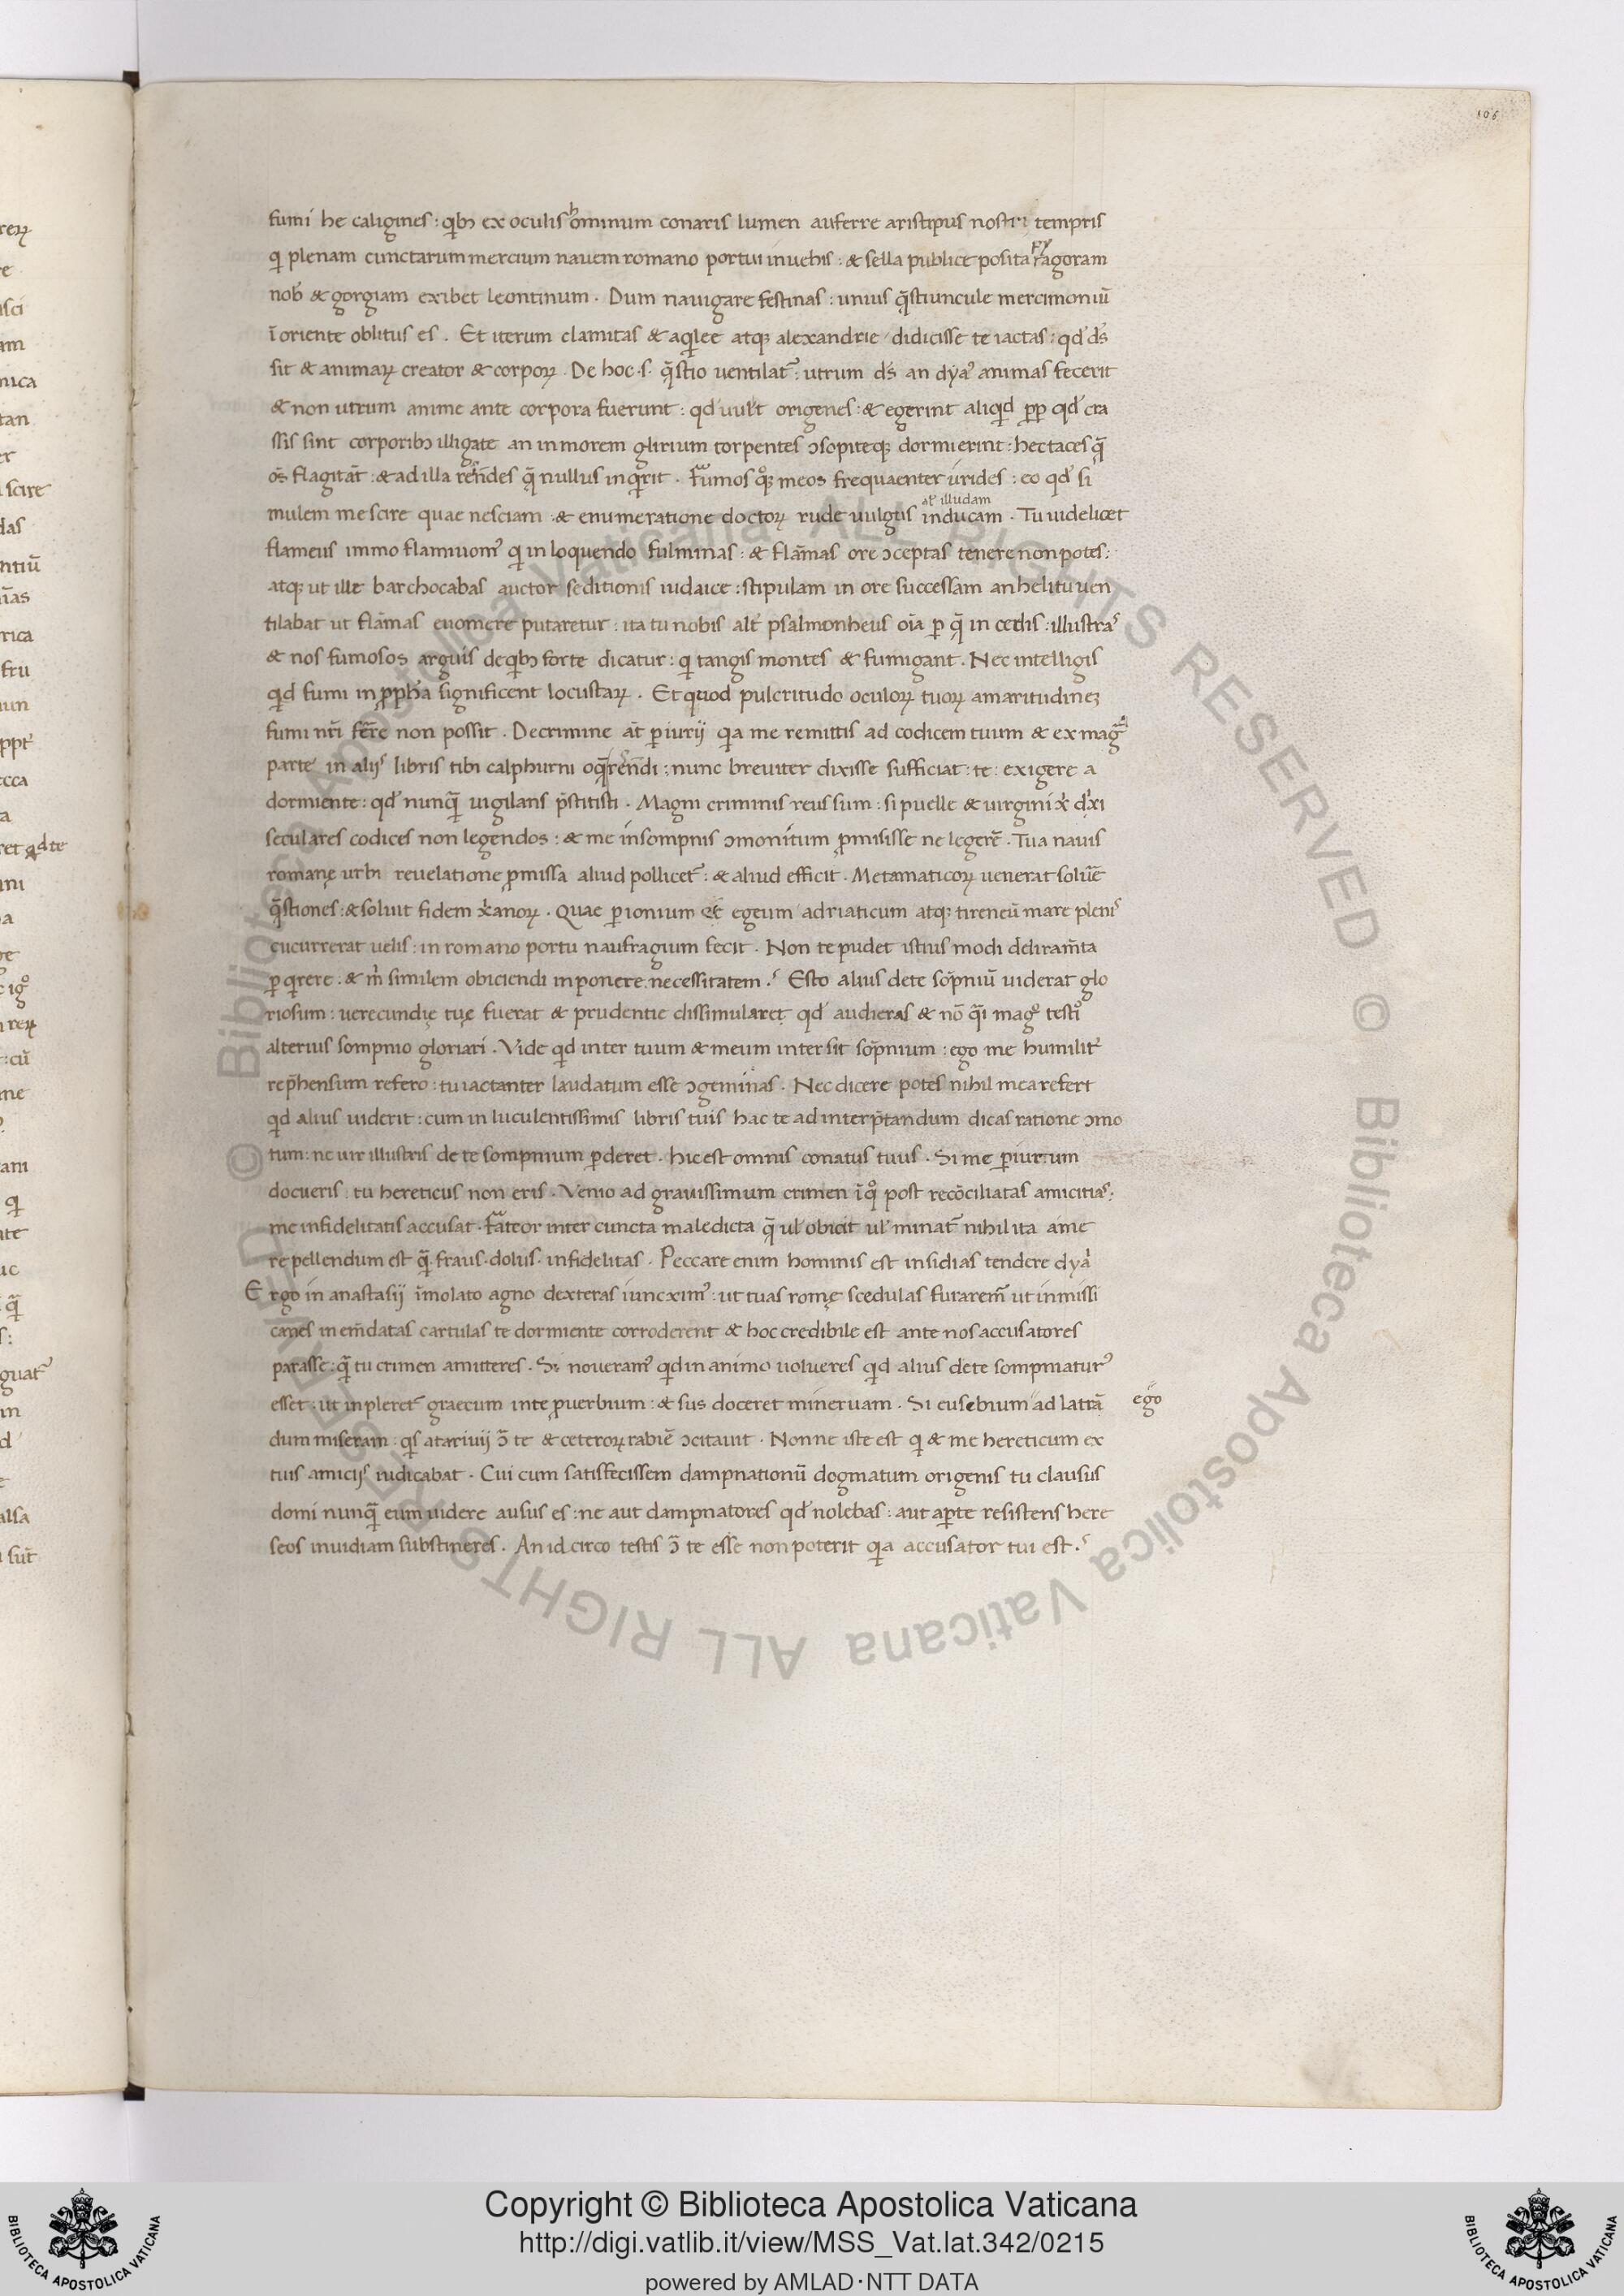 106
fumi he caligines : qib; ex oculis hominum conaris lumen auferre aristipus nostri tempris
qi plenam cunctarum mercium nauem romano portui inuehis : & sella publice posita pytagoram
nob̄ & gorgiam exibet leontinum . Dum nauigare festinas : unius q̄stiuncule mercimoniū
ī oriente oblitus es . Et iterum clamitas & aqilee atq; alexandrie didicisse te iactas : qd' ds̄
sit & animaꝝ creator & corpoꝝ . De hoc .s. q̄stio uentilat᷑ : utrum ds̄ an dyaꝰ animas fecerit
& non utrum anime ante corpora fuerunt : qd' uult origenes : & egerint aliqid ꝓp qd' cra
ssis sint corporib; illigate an in morem glirium torpentes ɔsopiteq; dormierint : hec taces q̄
os̄ flagitāt : & ad illa rn̄des q̄ nullus inqirit . Fumos qoq; meos frequaenter irrides : eo qd' si
al' illudam
mulem me scire quae nesciam : & enumeratione doctoꝝ rude uulgus inducam . Tu uidelicet
flameus immo flammomꝰ qi in loquendo fulminas : & flām̄as ore ɔceptas tenere non potes :
atq; ut ille barchocabas auctor seditionis iudaice : stipulam in ore successam anhelitu uen
tilabat ut flām̄as euomere putaretur : ita tu nobis alt̄ psalmonheus oīa ꝑ q̄ in cedis : illustras
& nos fumosos arguis de qib; forte dicatur : qi tangis montes & fumigant . Nec intelligis
qid fumi in ꝓpha significent locustaꝝ . Et quod pulcritudo oculoꝝ tuoꝝ amaritudinez
fumi nr̄i fer̄re non possit . De crimine āt ꝑiurij qia me remittis ad codicem tuum & ex mag̃
parte in alijs libris tibi calphurni oq̄ rn̄di : nunc breuiter dixisse sufficiat : te : exigere a
dormiente : qd' nunq̄ uigilans p̄stitisti . Magni criminis reus sum : si puelle & uirgini x̄i dixi
seculares codices non legendos : & me insompnis ɔmonitum ꝓmisisse ne legerē . Tua nauis
romanę urbi reuelatione ꝓmissa aliud pollicet᷑ : & aliud efficit . Metamaticoꝝ uenerat soluē
q̄stiones : & soluit fidem x̄anoꝝ . Quae ꝑ ionium & egeum adriaticum atq; tireneū mare plenis
cucurrerat uelis : in romano portu naufragium fecit . Non te pudet istius modi deliram̄ta
ꝑqirere : & m̄ similem obiciendi inponere necessitatem . Esto alius de te sop̄niū uiderat glo
riosum : uerecundię tuę fuerat & prudentie dissimularet qd' audieras & nō q̄i magᵒ testiᵒ
alterius sompnio gloriari . Vide qid inter tuum & meum intersit sop̄nium : ego me humilit᷑
rep̄hensum refero : tu iactanter laudatum esse ɔgeminas . Nec dicere potes nihil mea refert
qid alius uiderit : cum in luculentissimis libris tuis hac te ad interp̄tandum dicas ratione ɔmo
tum : ne uir illustris de te sompnium ꝑderet . hic est omnis conatus tuus . Si me ꝑiurum
docueris : tu hereticus non eris . Venio ad grauissimum crimen ī qᵒ post recōciliatas amicitias :
me infidelitatis accusat . Fateor inter cuncta maledicta q̄ ul' obicit ul' minat᷑ nihil ita a me
repellendum est q̄ . fraus . dolus . infidelitas . Peccare enim hominis est insidias tendere dyai
Ergo in anastasij īmolato agno dexteras iuncximꝰ : ut tuas romę scedulas furarem̃ ut inmissi
canes inem̄datas cartulas te dormiente corroderent & hoc credibile est ante nos accusatores
parasse : q̄ tu crimen amitteres . Si noueramꝰ qid in animo uolueres qid alius de te sompniaturꝰ
esset : ut inpleret᷑ graecum in te ꝓuerbium : & sus doceret mineruam . Si eusebium ad latrā
ego
dum miseram : qis atariuij ɔ̄ te & ceteroꝝ rabiē ɔcitauit . Nonne iste est qi & me hereticum ex
tuis amicijs iudicabat . Cui cum satisfecissem dampnationū dogmatum origenis tu clausus
domi nunq̄ eum uidere ausus es : ne aut dampnatores qd' nolebas : aut aꝑte resistens here
seos inuidiam substineres . An idcirco testis ɔ̄ te esse non poterit qia accusator tui est .
Copyright © Biblioteca Apostolica Vaticana
http://digi.vatlib.it/view/MSS_Vat.lat.342/0215
powered by AMLAD·NTT DATA
BIBLIOTECA APOSTOLICA VATICANA
BIBLIOTECA APOSTOLICA VATICANA
© Biblioteca Apostolica Vaticana ALL RIGHTS RESERVED © Biblioteca Apostolica Vaticana ALL RIGHTS RESERVED